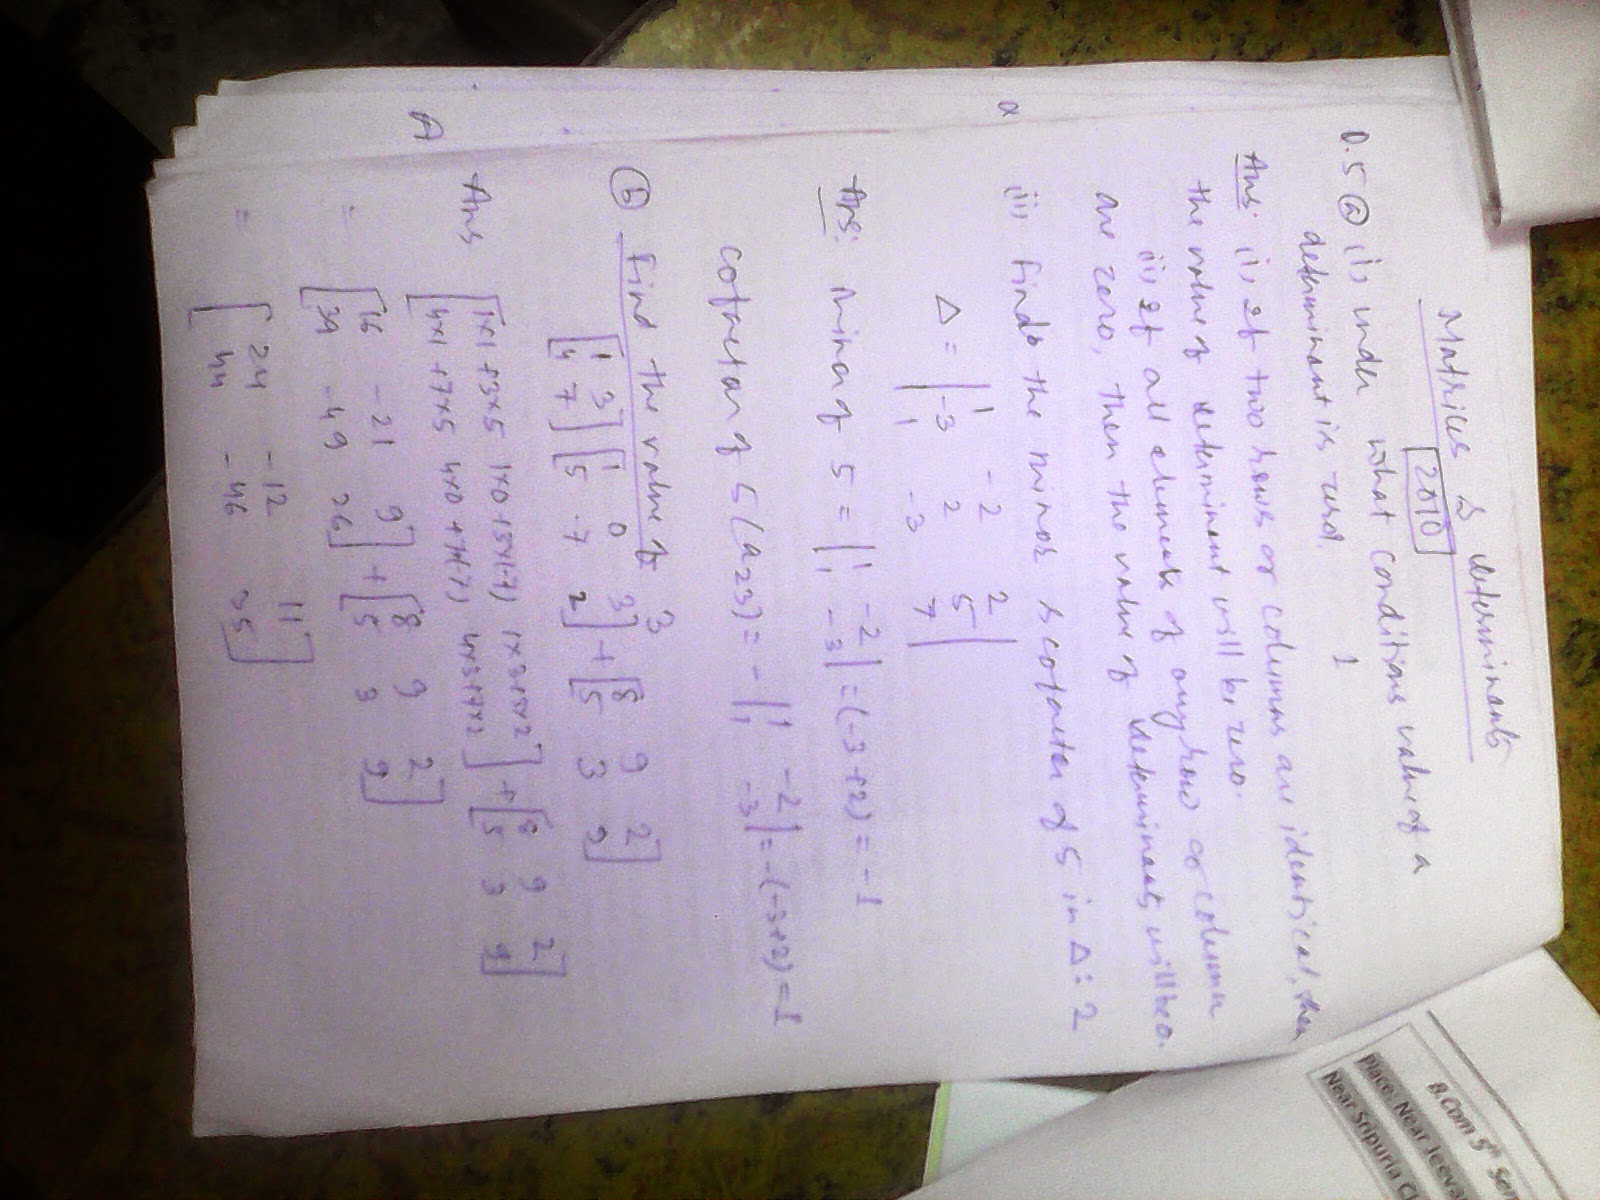 Matrices & determinants
2010
Q.5 (a) (i) under what conditions value of a
determinant is zero. 1
Ans: (i) If two rows or columns are identical, then
the value of determinant will be zero.
(ii) If all elements of any row or column
are zero, then the value of determinants will be 0.
(ii) Find the minor & cofactor of 5 in Δ: 2
Δ = | 1 -2 2
-3 2 5
1 -3 7 |
Ans: minor of 5 = | 1 -2
1 -3 | = (-3+2) = -1
cofactor of 5 (a23) = - | 1 -2
1 -3 | = -(-3+2) = 1
(b) Find the value of 3
[ 1 3
4 7 ] [ 1 0 3
5 -7 2 ] + [ 8 9 2
5 3 9 ]
Ans [ 1x1 + 3x5 1x0 + 3x(-7) 1x3+3x2
4x1 + 7x5 4x0 + 7x(-7) 4x3+7x2 ] + [ 8 9 2
5 3 9 ]
= [ 16 -21 9
39 -49 26 ] + [ 8 9 2
5 3 9 ]
= [ 24 -12 11
44 -46 35 ]
B.Com 5th Se
Place: Near Jeeva
Near Sripuria C